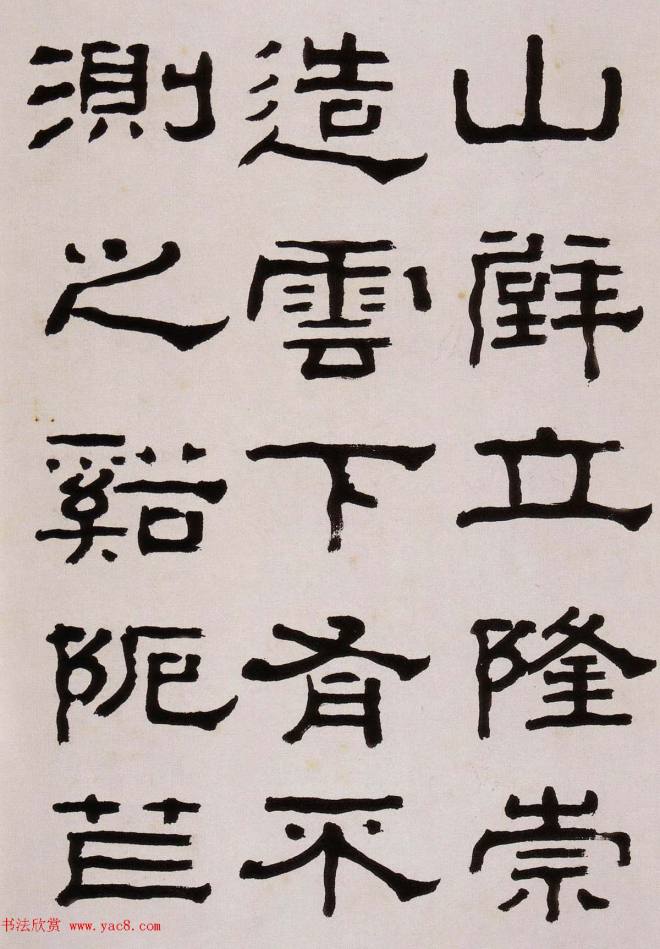 山壁立隆崇
造雲下有不
測之谿阨苲
书法欣赏 www.yac8.com